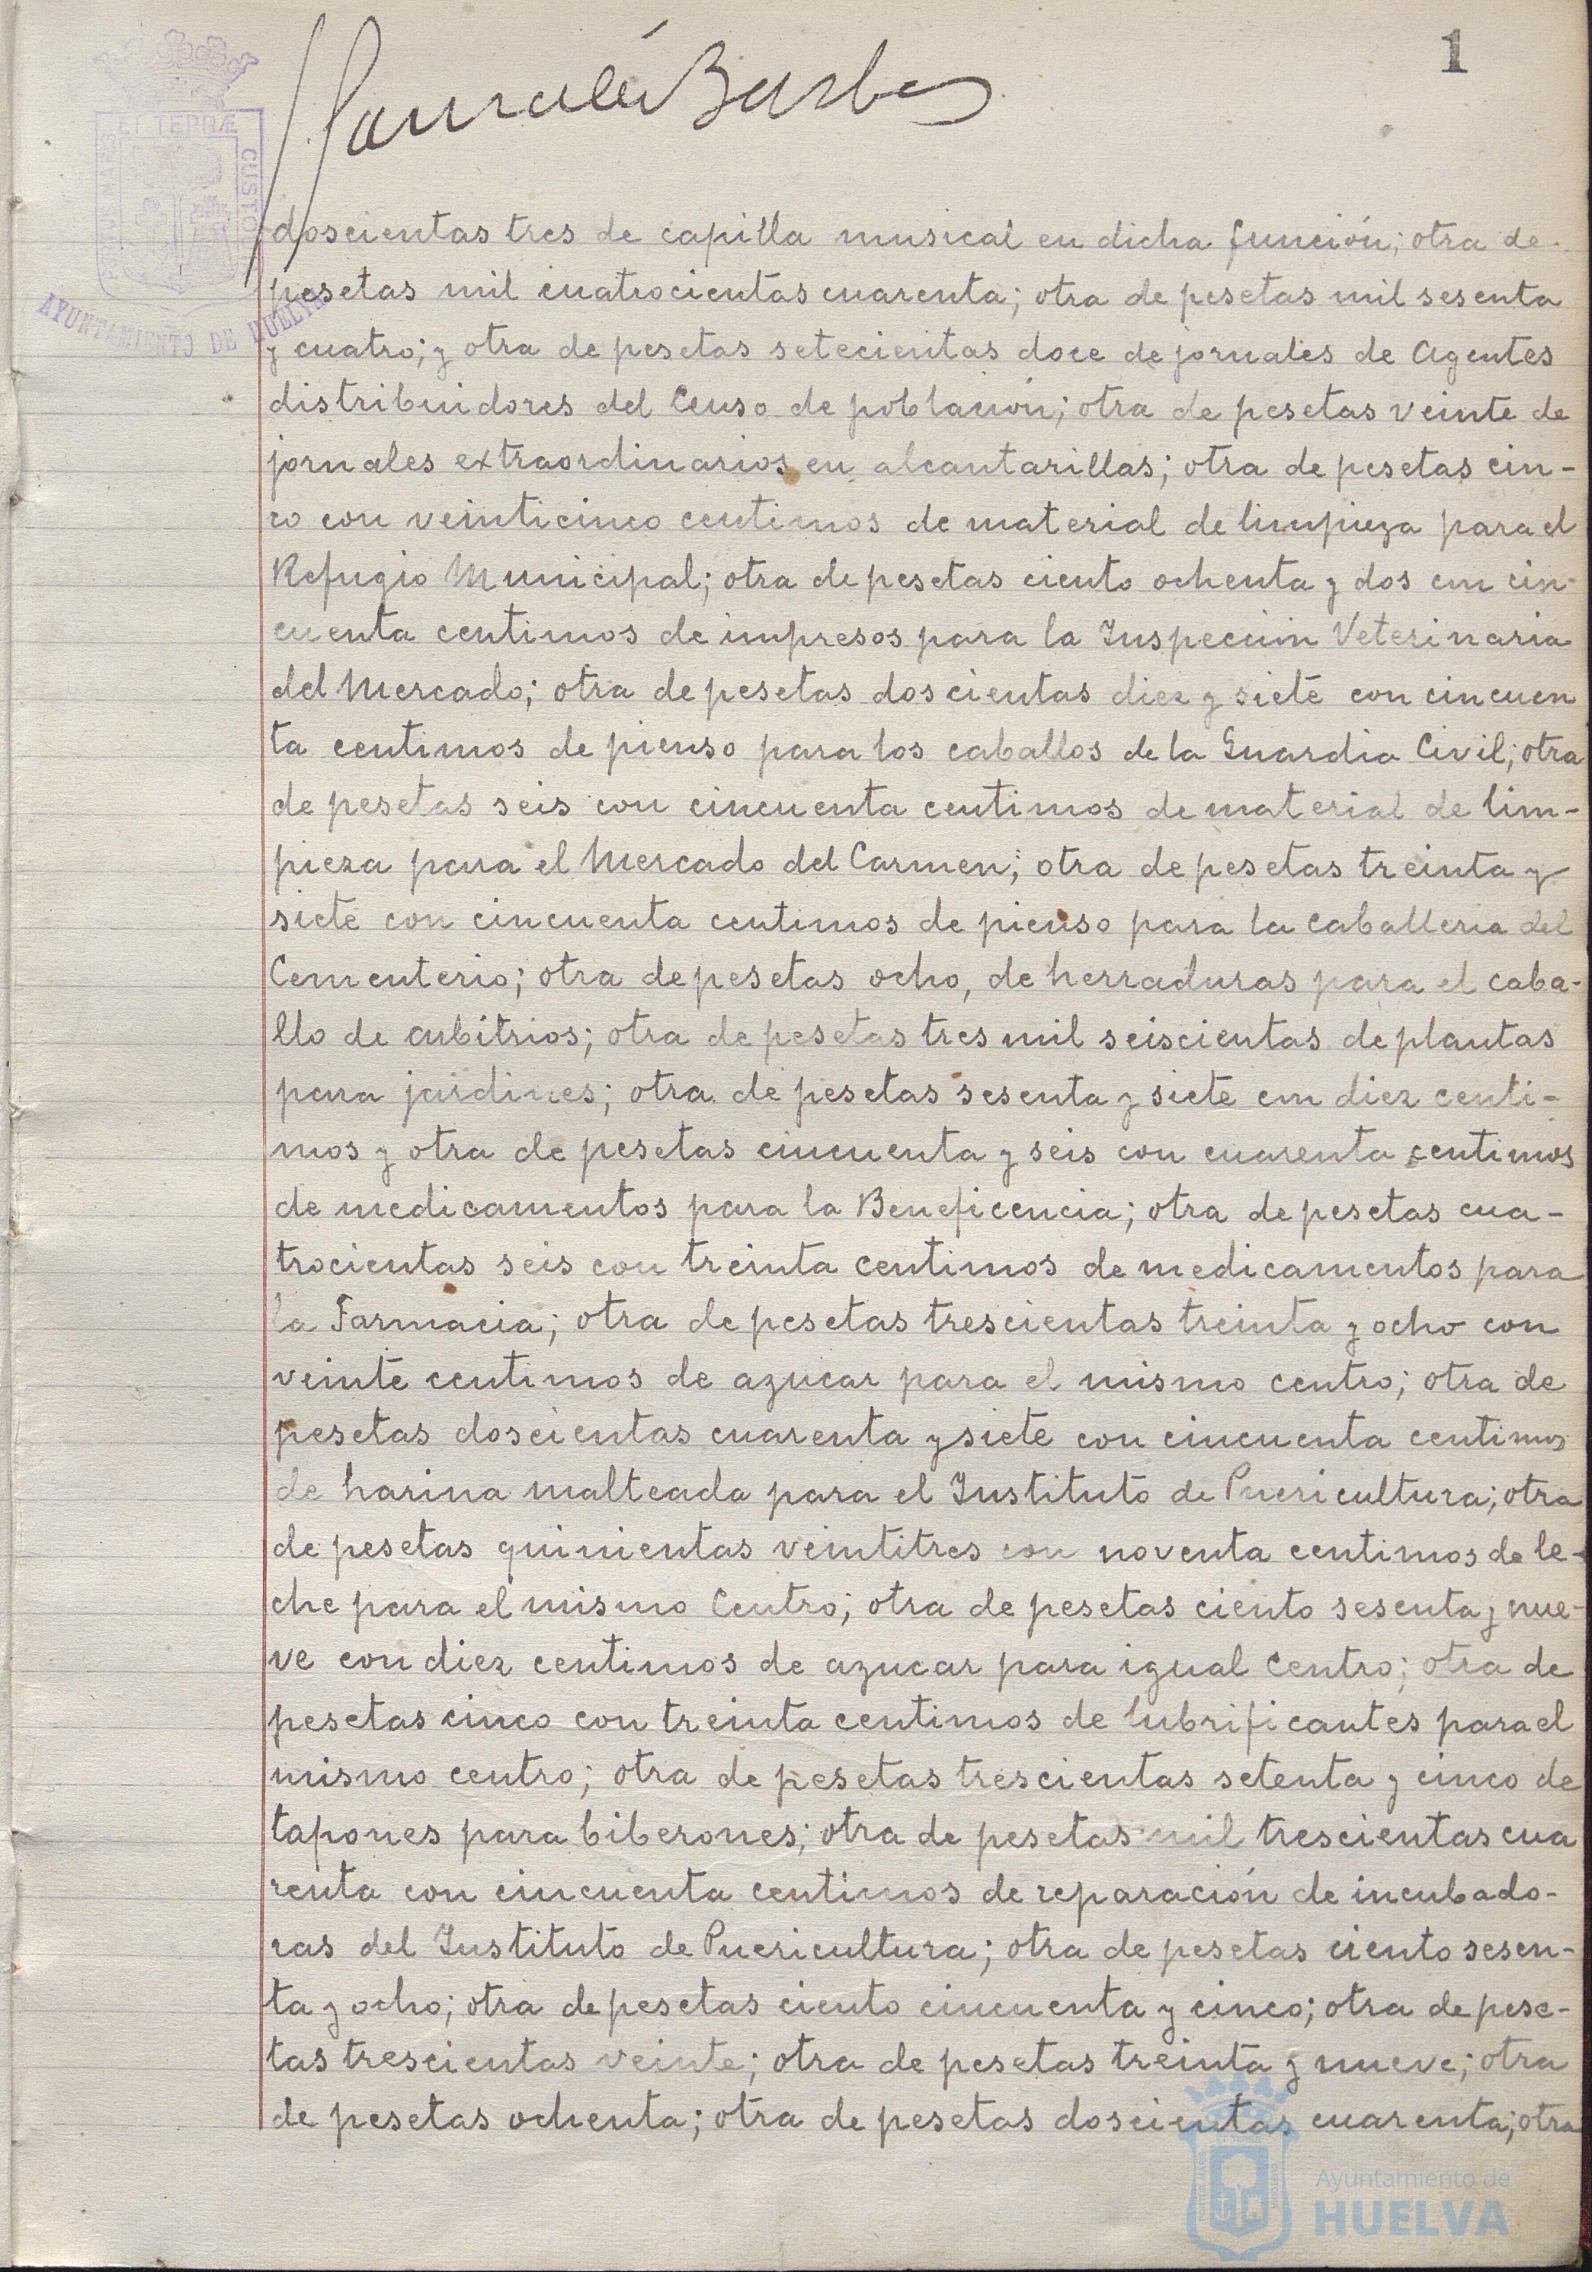 1
doscientas tres de capilla musical en dicha función; otra de
pesetas mil cuatrocientas cuarenta; otra de pesetas mil sesenta
y cuatro; y otra de pesetas setecientas doce de jornales de Agentes
distribuidores del Censo de población; otra de pesetas veinte de
jornales extraordinarios en alcantarillas; otra de pesetas cin-
co con veinticinco centimos de material de limpieza para el
Refugio Municipal; otra de pesetas ciento ochenta y dos con cin-
cuenta centimos de impresos para la Inspección Veterinaria
del Mercado; otra de pesetas doscientas diez y siete con cincuen
ta centimos de pienso para los caballos de la Guardia Civil; otra
de pesetas seis con cincuenta centimos de material de lim-
pieza para el Mercado del Carmen; otra de pesetas treinta y
siete con cincuenta centimos de pienso para la caballeria del
Cementerio; otra de pesetas ocho, de herraduras para el caba-
llo de arbitrios; otra de pesetas tres mil seiscientas de plantas
para jardines; otra de pesetas sesenta y siete con diez centi-
mos y otra de pesetas cincuenta y seis con cuarenta centimos
de medicamentos para la Beneficencia; otra de pesetas cua-
trocientas seis con treinta centimos de medicamentos para
la Farmacia; otra de pesetas trescientas treinta y ocho con
veinte centimos de azucar para el mismo centro; otra de
pesetas doscientas cuarenta y siete con cincuenta centimos
de harina malteada para el Instituto de Puericultura; otra
de pesetas quinientas veintitres con noventa centimos de le-
che para el mismo Centro; otra de pesetas ciento sesenta y nue-
ve con diez centimos de azucar para igual Centro; otra de
pesetas cinco con treinta centimos de lubrificantes para el
mismo centro; otra de pesetas trescientas setenta y cinco de
tapones para biberones; otra de pesetas mil trescientas cua
renta con cincuenta centimos de reparación de incubado-
ras del Instituto de Puericultura; otra de pesetas ciento sesen-
ta y ocho; otra de pesetas ciento cincuenta y cinco; otra de pese-
tas trescientas veinte; otra de pesetas treinta y nueve; otra
de pesetas ochenta; otra de pesetas doscientas cuarenta; otra
AYUNTAMIENTO DE HUELVA
Ayuntamiento de
HUELVA